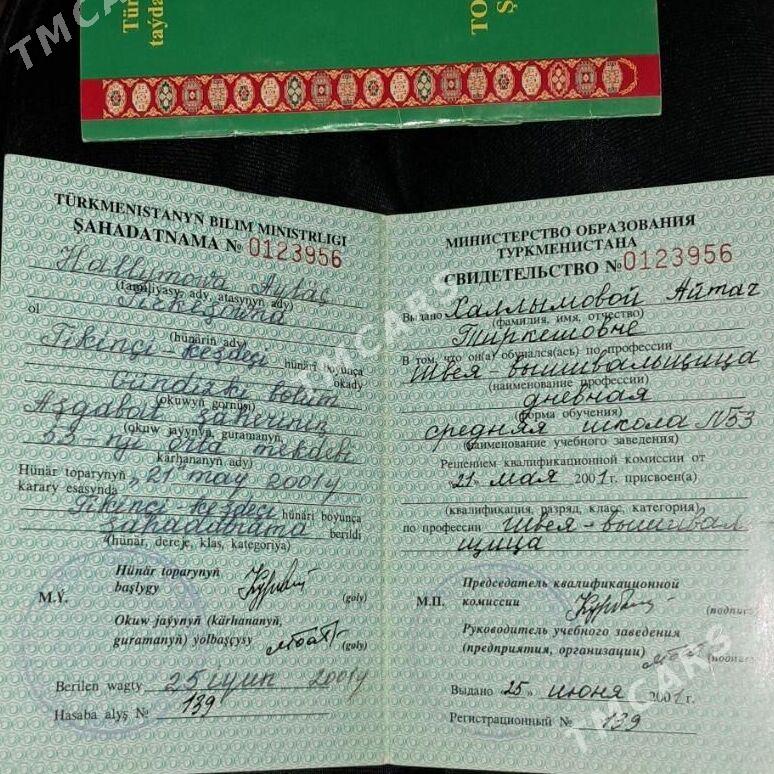 Tür
taýda
TO
Ş
TÜRKMENISTANYŇ BILIM MINISTRLIGI
ŞAHADATNAMA № 0123956
Hallymowa Aýtäç
(familiýasy, ady, atasynyň ady)
Tirkeşowna
ol
(hünäriň ady)
Tikinçi-keşdeçi hünäri boýunça
okady
Gündizki bölüm
(okuwyň görnüşi)
Aşgabat şäheriniň
(okuw jaýynyň, guramanyň,
53-nji orta mekdebi
kärhananyň ady)
Hünär toparynyň „21" maý 2001ý
karary esasynda
Tikinçi-keşdeçi hünäri boýunça
şahadatnama berildi
(hünär, dereje, klas, kategoriýa)
Hünär toparynyň
başlygy
(goly)
M.Ý.
Okuw jaýynyň (kärhananyň,
guramanyň) ýolbaşçysy
(goly)
Berilen wagty 25 iýun 2001ý
Hasaba alyş № 139
МИНИСТЕРСТВО ОБРАЗОВАНИЯ
ТУРКМЕНИСТАНА
СВИДЕТЕЛЬСТВО № 0123956
Выдано Халлымовой Айтач
(фамилия, имя, отчество)
Тиркешовне
В том, что он(а) обучался(ась) по профессии
Швея-вышивальщица
(наименование профессии)
дневная
(форма обучения)
средняя школа N53
(наименование учебного заведения)
Решением квалификационной комиссии от
«21» мая 2001г. присвоен(а)
(квалификация, разряд, класс, категория)
по профессии Швея-вышивал
щица
Председатель квалификационной
М.П. комиссии
(подпись
Руководитель учебного заведения
(предприятия, организации)
(подпись
Выдано «25» июня 2001г.
Регистрационный № 139
TMCARS
TMCARS
TMCARS